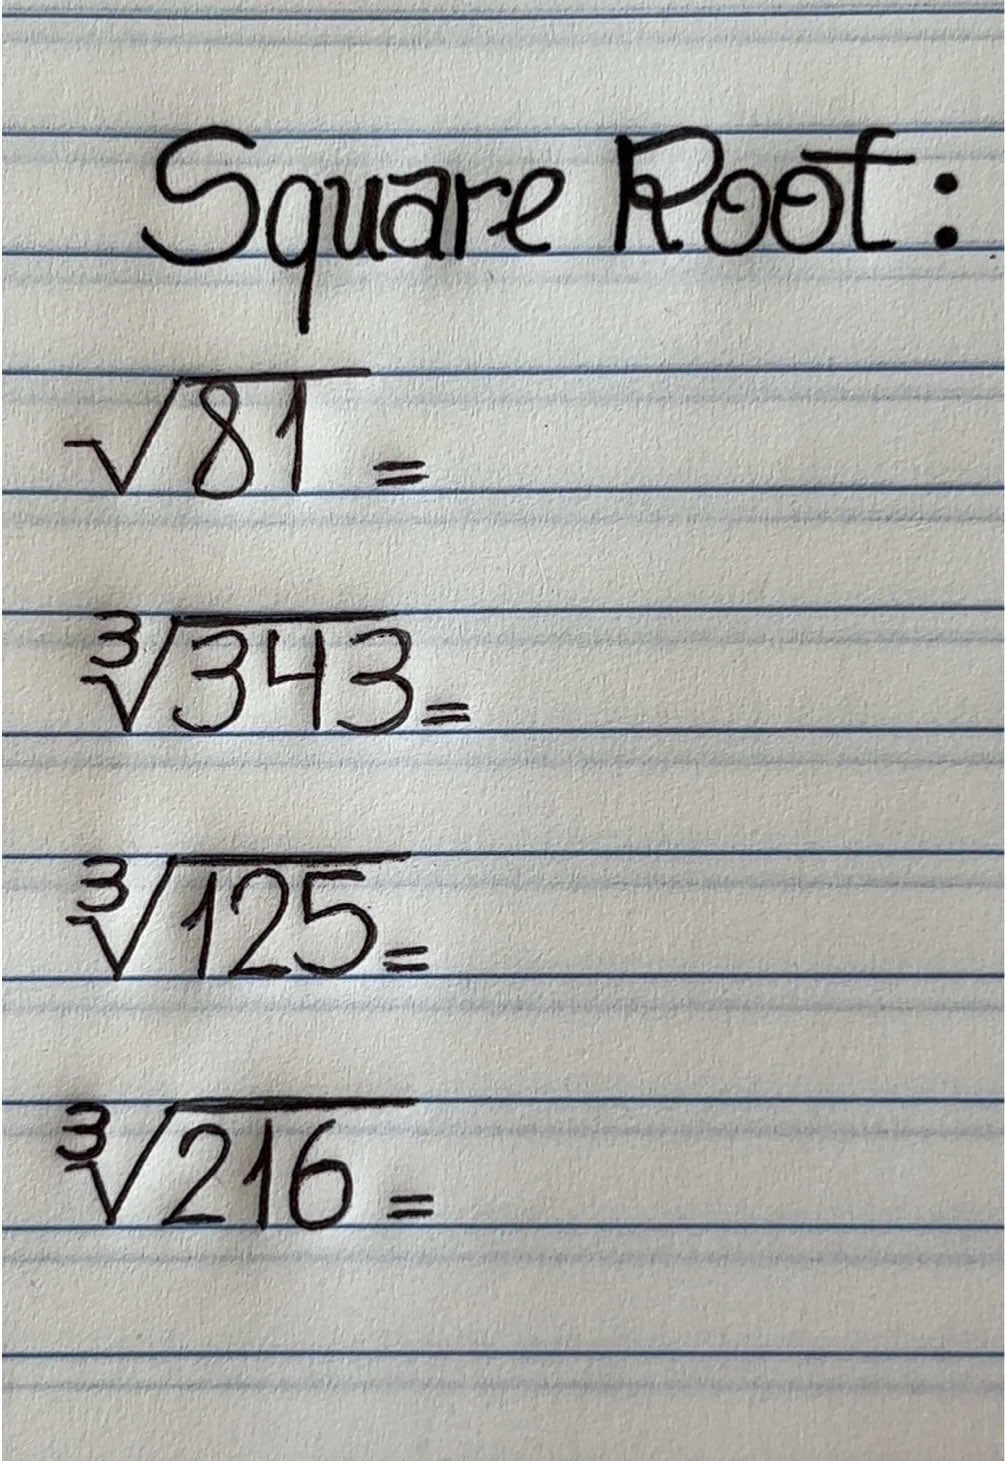 Square Root:
√81 =
∛343 =
∛125 =
∛216 =